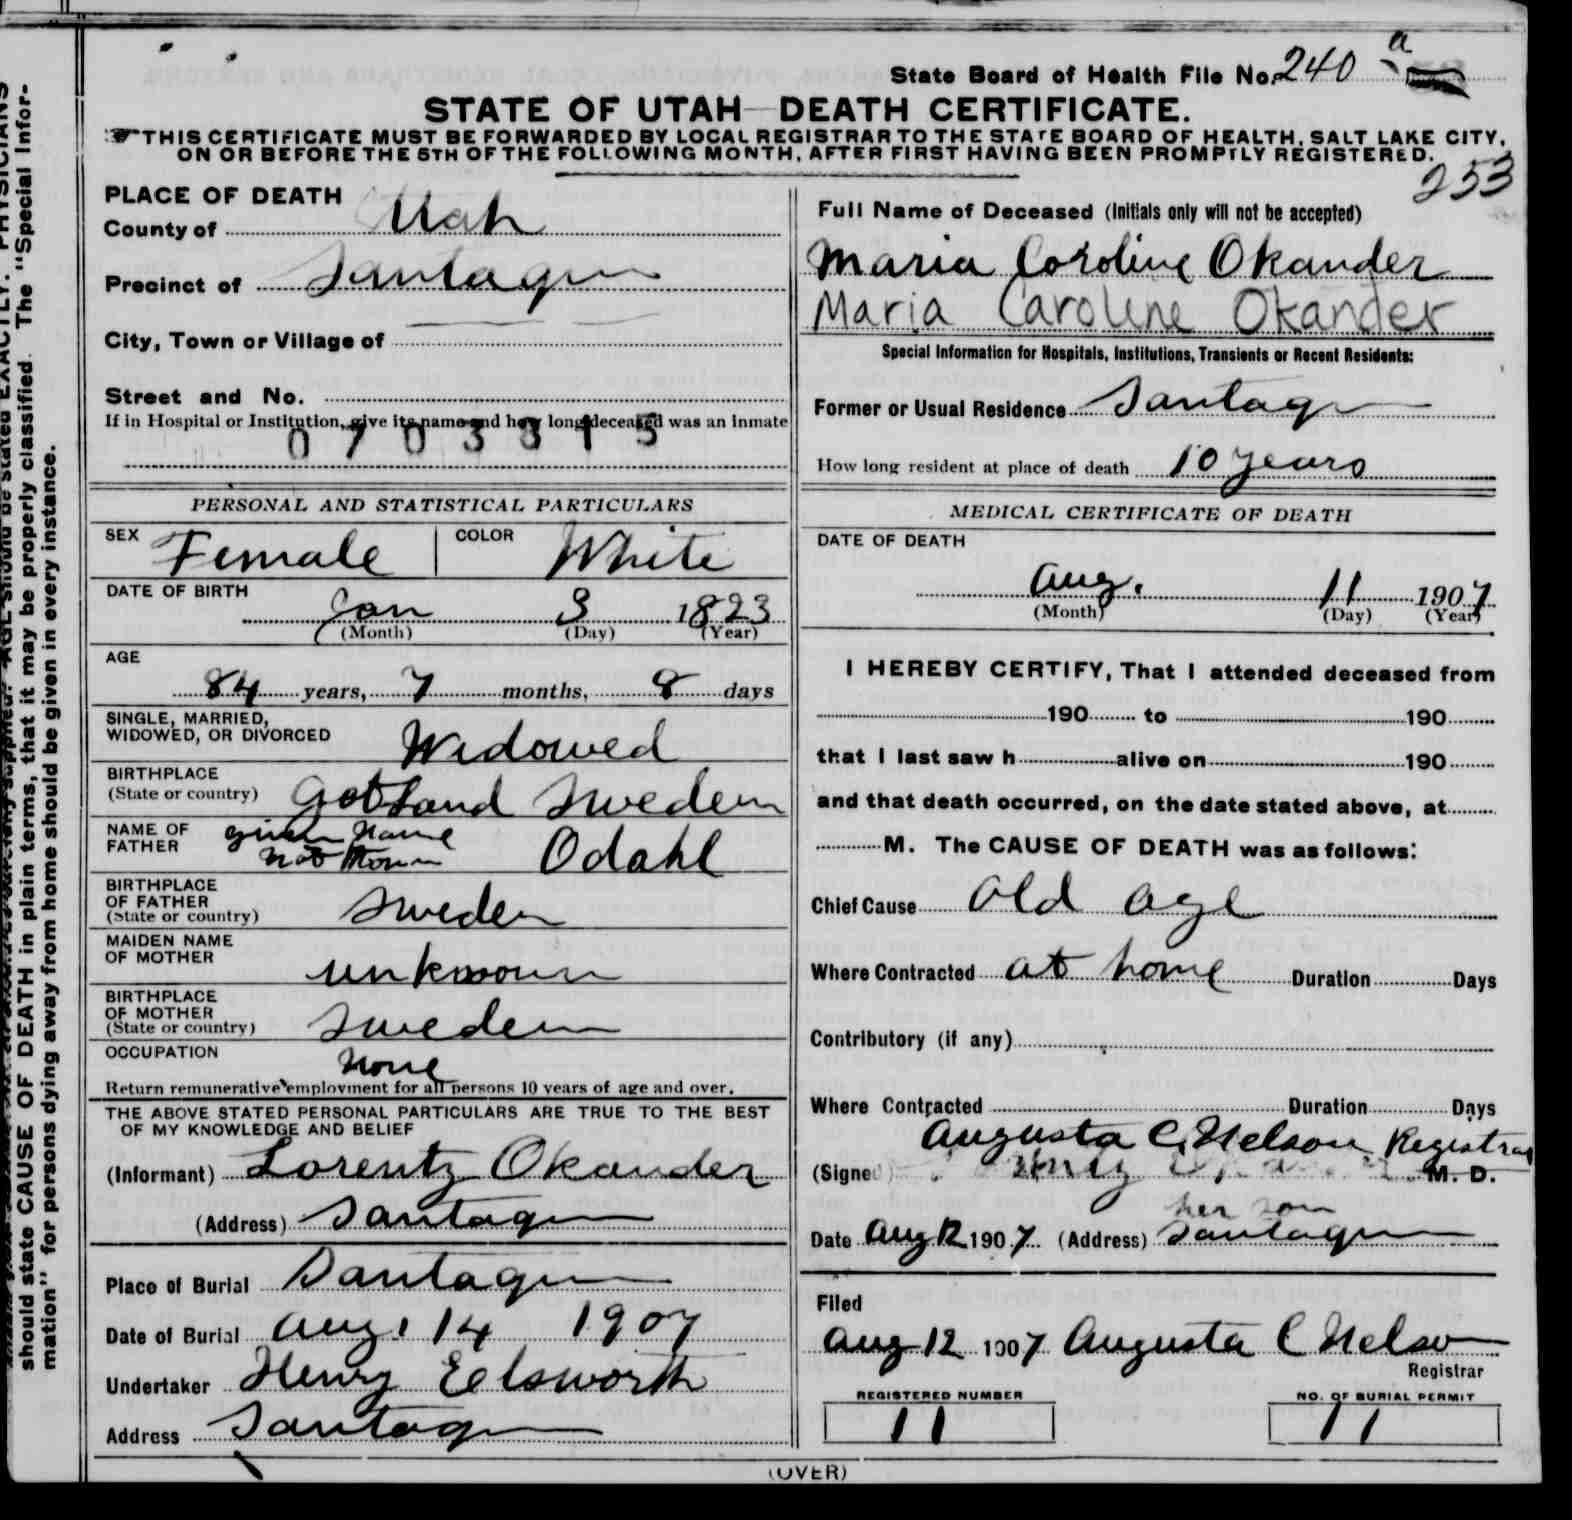 State Board of Health File No. 240 a
STATE OF UTAH—DEATH CERTIFICATE.
THIS CERTIFICATE MUST BE FORWARDED BY LOCAL REGISTRAR TO THE STATE BOARD OF HEALTH, SALT LAKE CITY,
ON OR BEFORE THE 5TH OF THE FOLLOWING MONTH, AFTER FIRST HAVING BEEN PROMPTLY REGISTERED.
253
should state CAUSE OF DEATH in plain terms, that it may be properly classified. The "Special Infor-
mation" for persons dying away from home should be given in every instance.
PLACE OF DEATH
County of Utah
Precinct of Santaquin
City, Town or Village of
Street and No.
If in Hospital or Institution, give its name and how long deceased was an inmate
0703315
PERSONAL AND STATISTICAL PARTICULARS
SEX Female COLOR White
DATE OF BIRTH
Jan 3 1823
(Month) (Day) (Year)
AGE
84 years, 7 months, 8 days
SINGLE, MARRIED,
WIDOWED, OR DIVORCED Widowed
BIRTHPLACE
(State or country) Gotland Sweden
NAME OF
FATHER given name
not known Odahl
BIRTHPLACE
OF FATHER
(State or country) Sweden
MAIDEN NAME
OF MOTHER unknown
BIRTHPLACE
OF MOTHER
(State or country) Sweden
OCCUPATION None
Return remunerative employment for all persons 10 years of age and over.
THE ABOVE STATED PERSONAL PARTICULARS ARE TRUE TO THE BEST
OF MY KNOWLEDGE AND BELIEF
(Informant) Lorentz Okander
(Address) Santaquin
Place of Burial Santaquin
Date of Burial Aug. 14 1907
Undertaker Henry Eelsworth
Address Santaquin
Full Name of Deceased (Initials only will not be accepted)
Maria Coroline Okander
Maria Caroline Okander
Special Information for Hospitals, Institutions, Transients or Recent Residents:
Former or Usual Residence Santaquin
How long resident at place of death 10 years
MEDICAL CERTIFICATE OF DEATH
DATE OF DEATH
Aug. 11 1907
(Month) (Day) (Year)
I HEREBY CERTIFY, That I attended deceased from
190 to 190
that I last saw h alive on 190
and that death occurred, on the date stated above, at
M. The CAUSE OF DEATH was as follows:
Chief Cause Old age
Where Contracted at home Duration Days
Contributory (if any)
Where Contracted Duration Days
Augusta C. Nelson Registrar
(Signed) M. D.
her son
Date Aug 12 1907 (Address) Santaquin
Filed
Aug 12 1907 Augusta C Nelson
Registrar
REGISTERED NUMBER
11
NO. OF BURIAL PERMIT
11
(OVER)